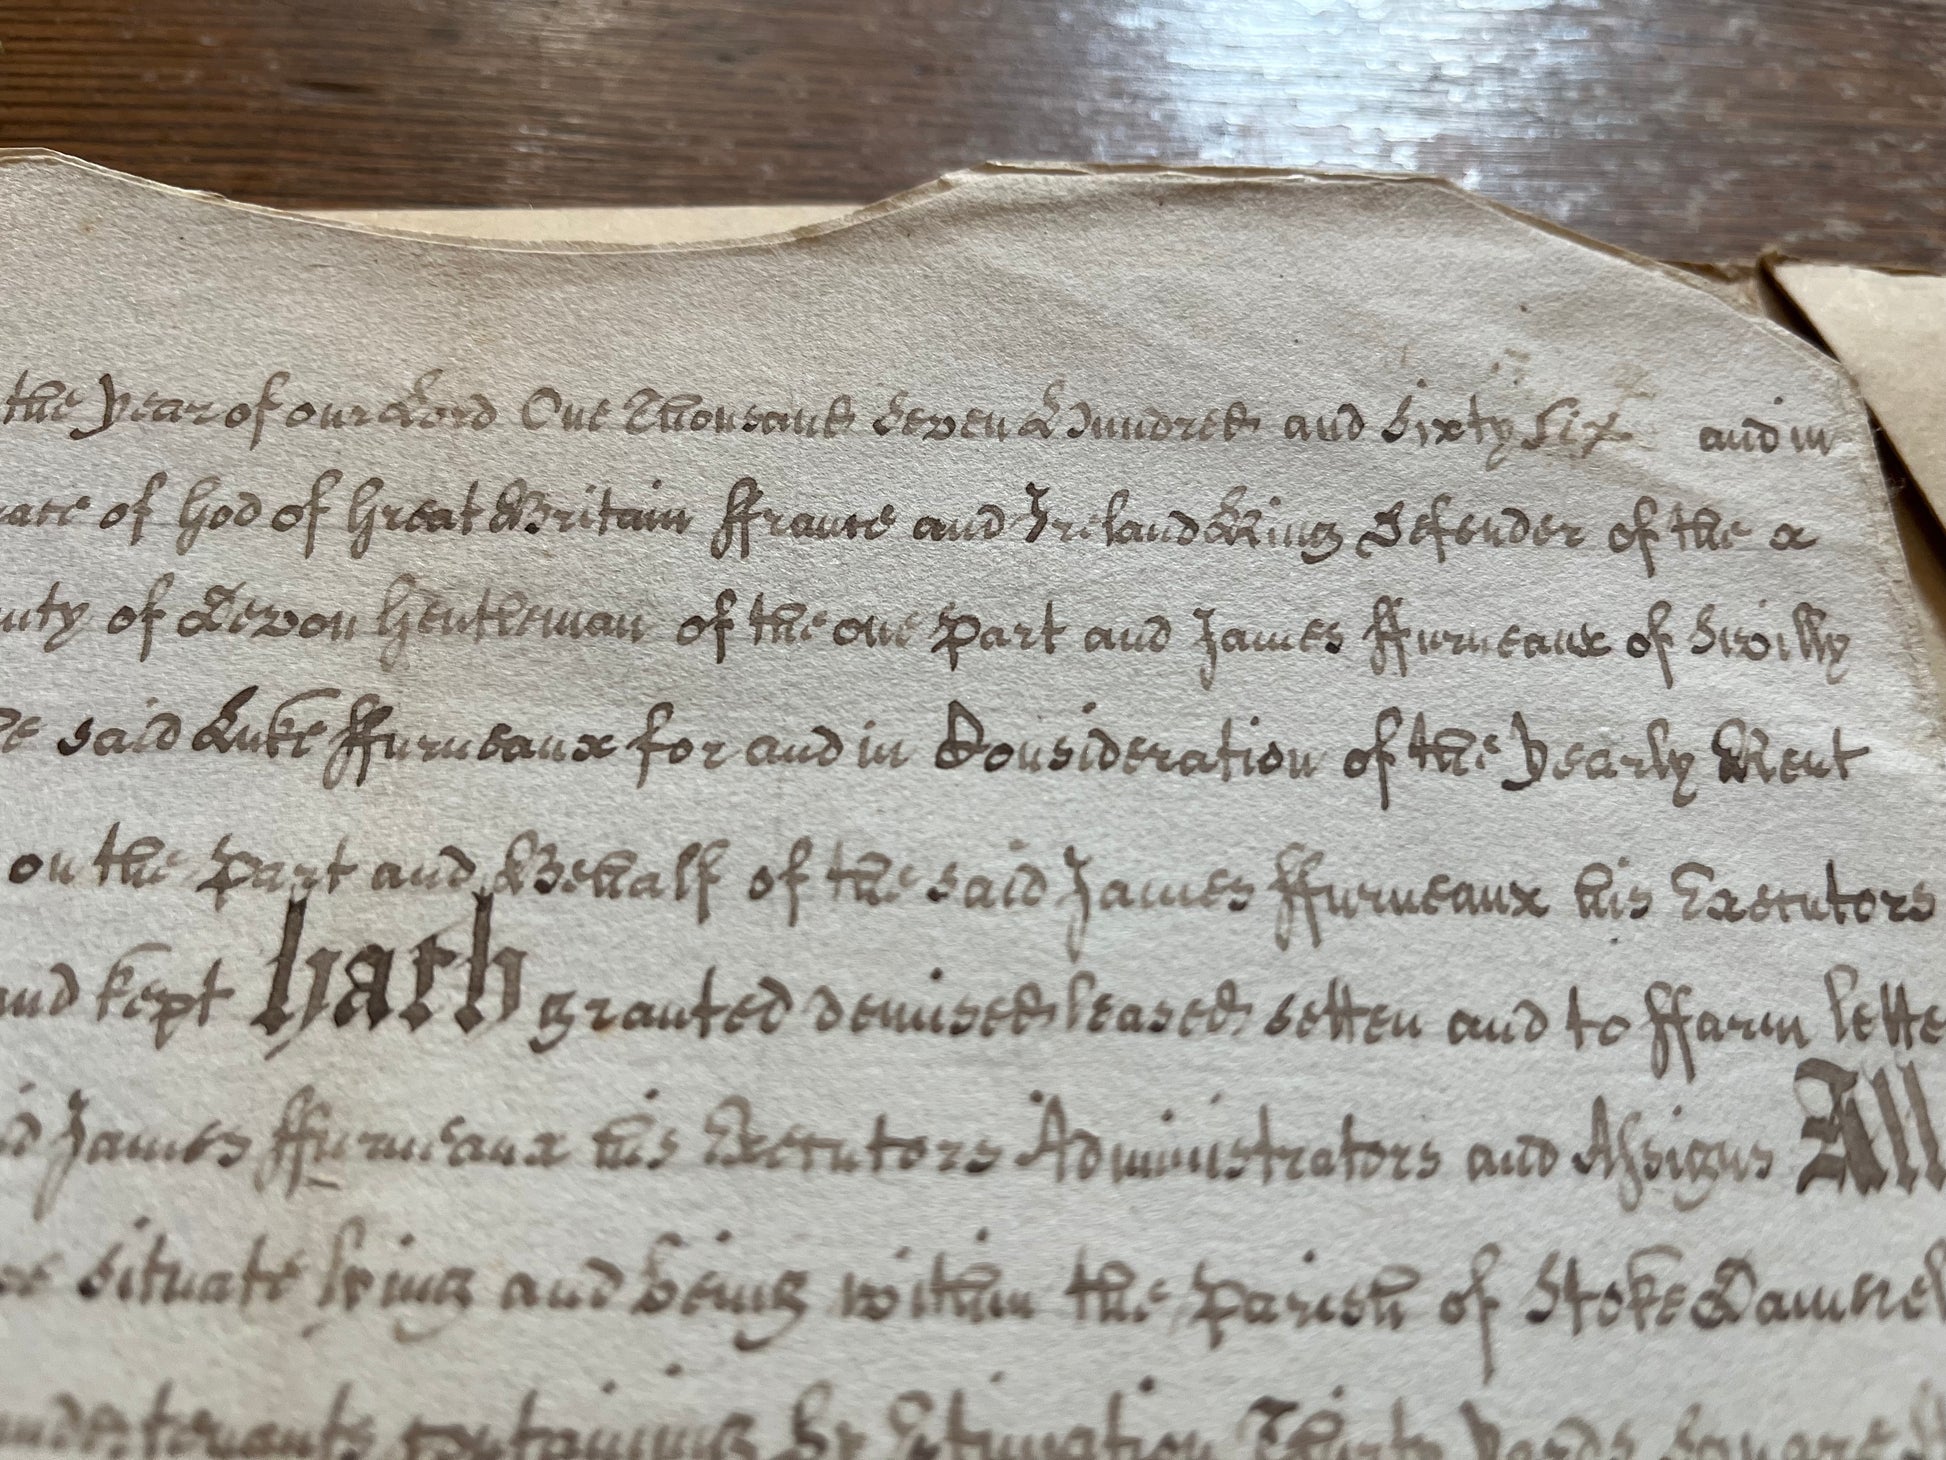 the Year of our Lord One Thousand Seven Hundred and Sixty Six and in
of God of Great Britain ffrance and Ireland King Defender of the x
of Devon Gentleman of the one Part and James ffurneaux of Swilly
said Luke ffurneaux for and in Consideration of the Yearly Rent
on the Part and Behalf of the said James ffurneaux his Executors
and kept hath granted demised leased setten and to ffarm lette
James ffurneaux his Executors Administrators and Assigns All
situate lying and being within the Parish of Stoke Damrel
containing by Estimation Thirty Yards Square